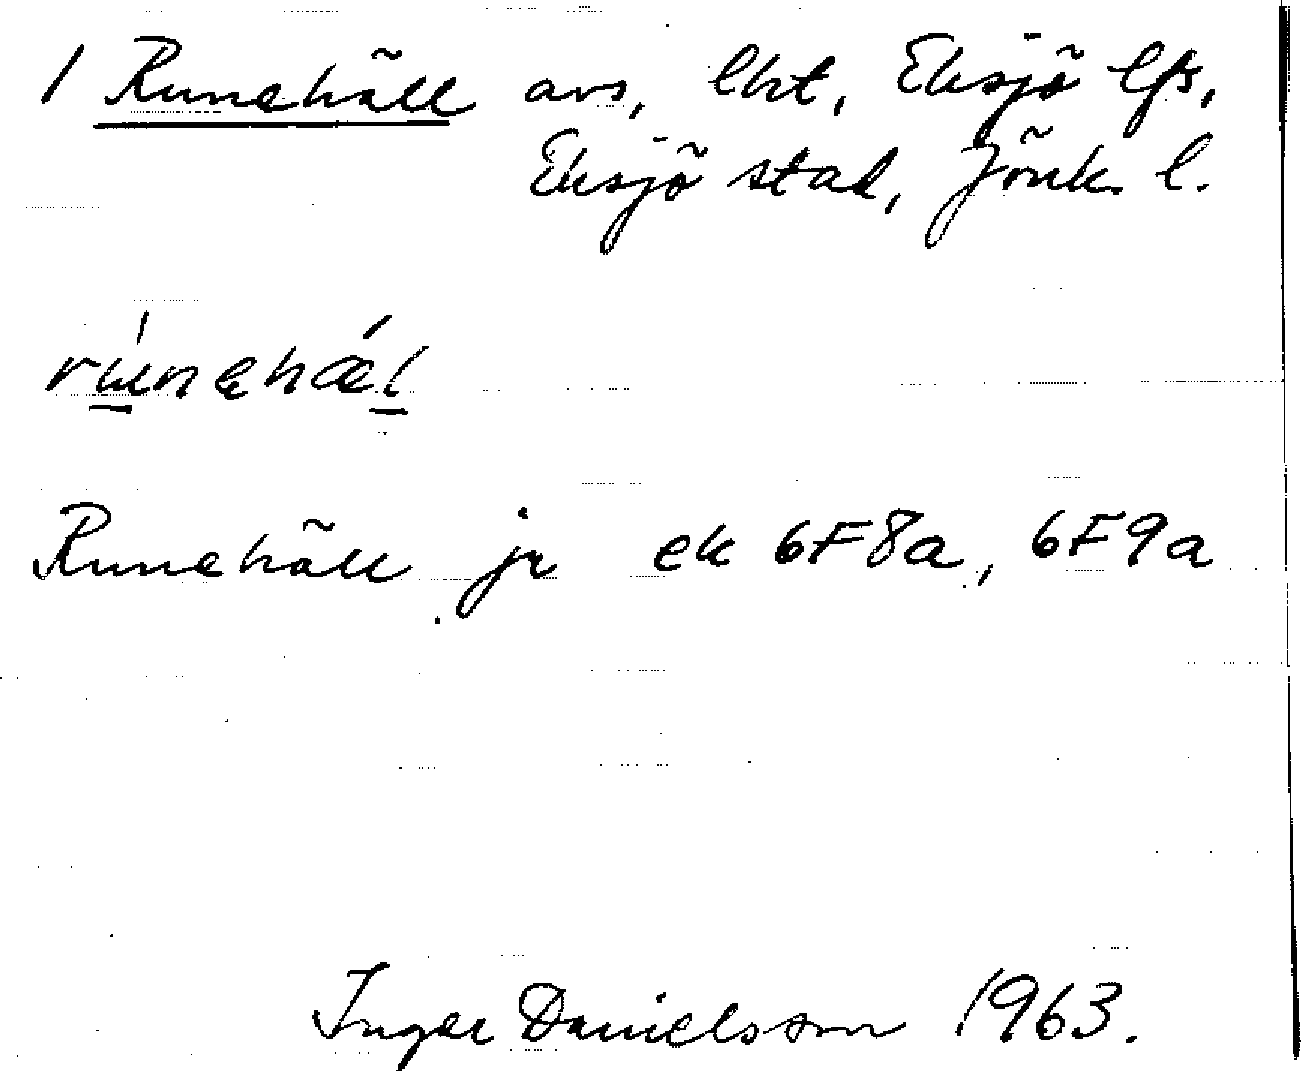 1 Runehäll avs, lht, Eksjö lfs,
Eksjö stad, Jönk. l.
rùnehǽl
Runehäll jr ek 6F8a, 6F9a
Inger Danielsson 1963.